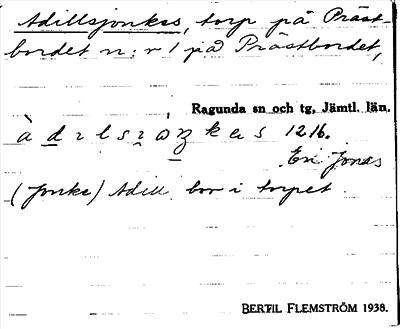 Adillsjonkes, torp på Präst-
bordet n:r 1 på Prästbordet,
Ragunda sn och tg, Jämtl. län.
1216.
Eri Jonas
(Jonke) Adill bor i torpet.
BERTIL FLEMSTRÖM 1938.